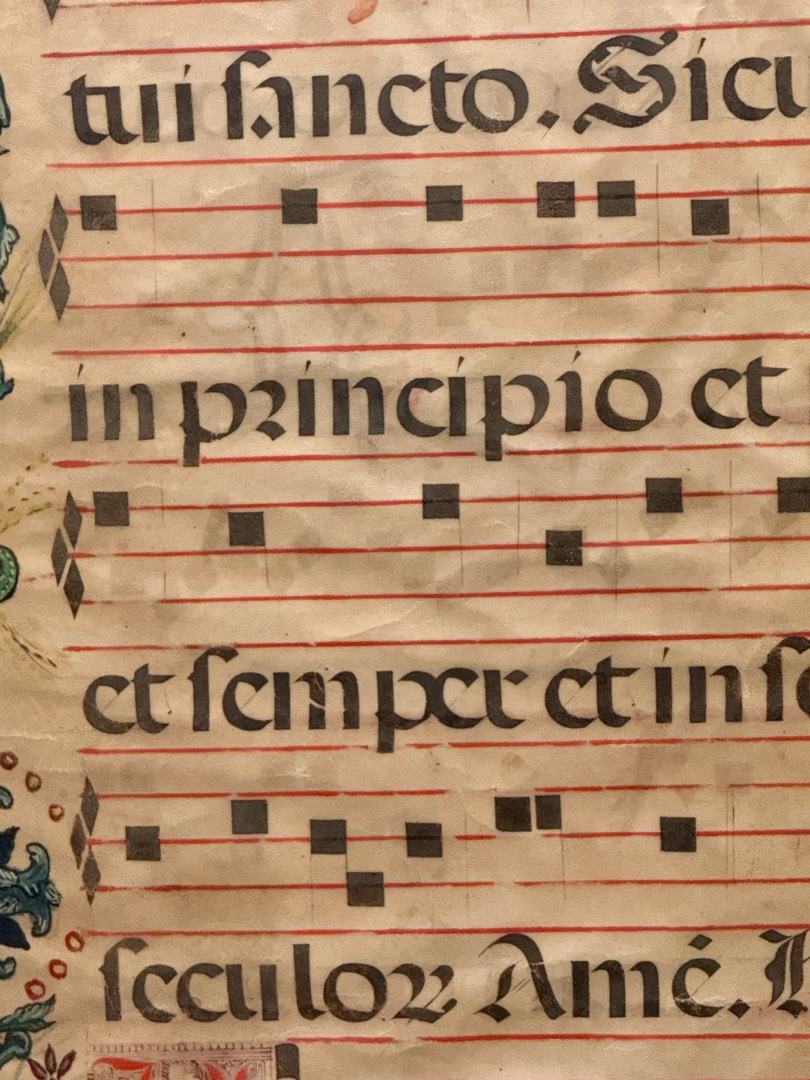 tui sancto. Sicu
in principio et
et semper et in se
seculoꝝ Amē.